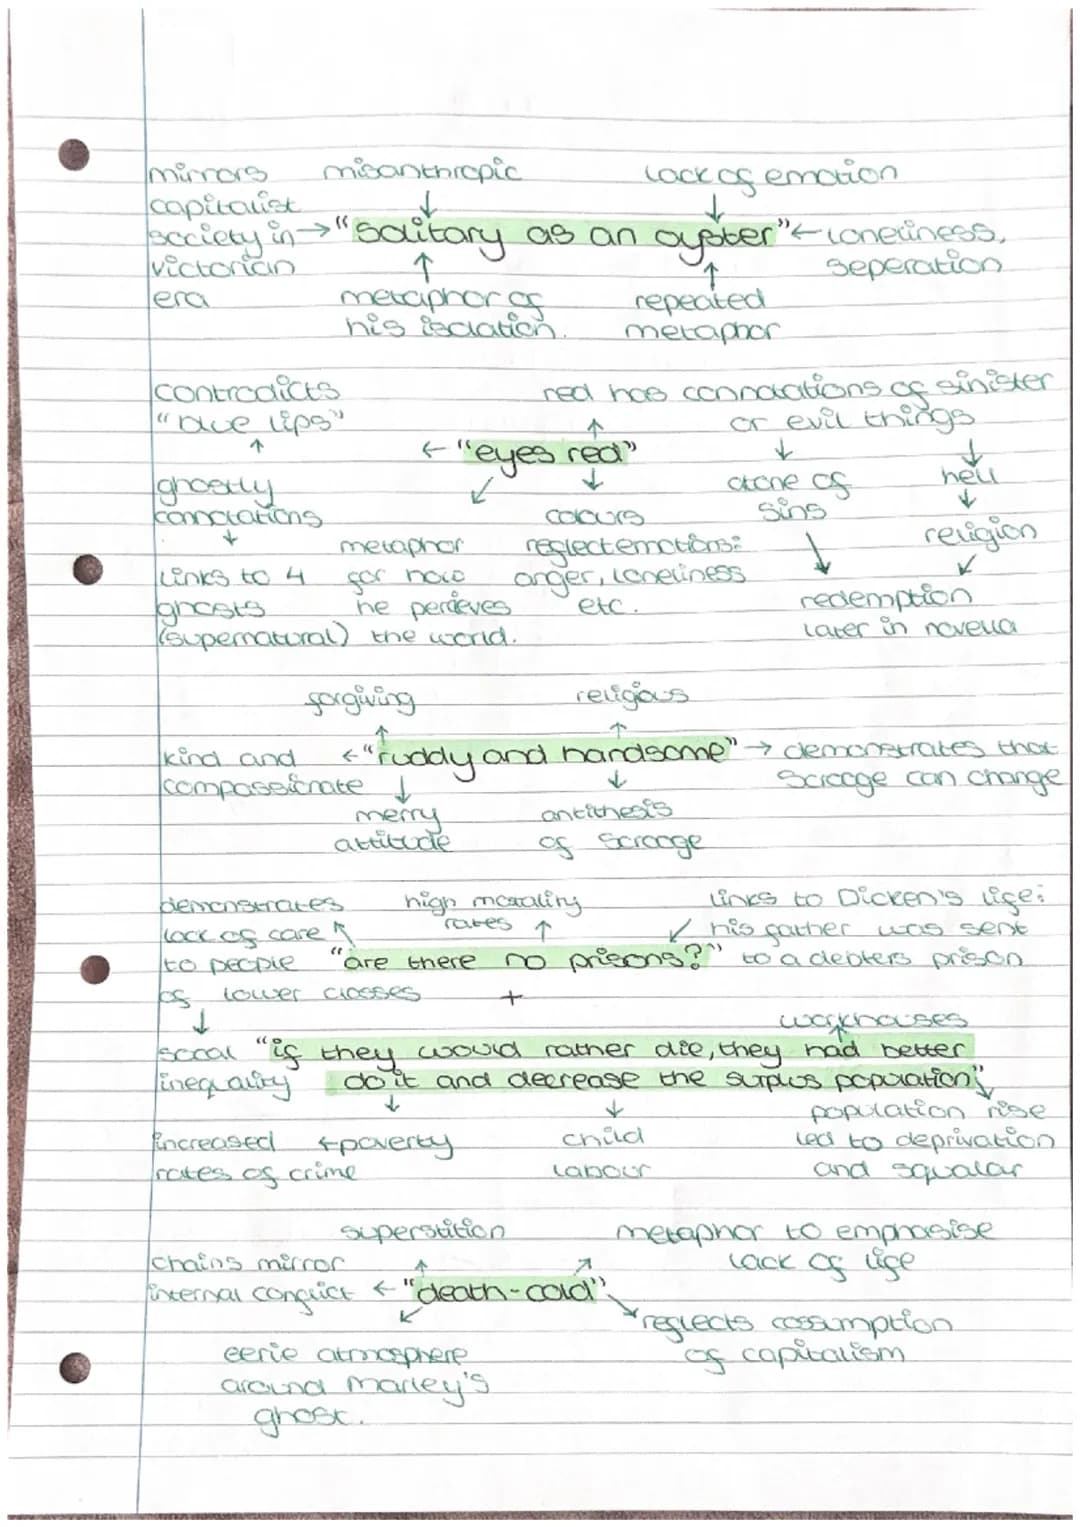 mirrors misanthropic lack of emotion
capitalist
society in → "solitary as an oyster" ← loneliness,
victorian seperation
era metaphor of repeated
his isolation. metaphor
contradicts red has connotations of sinister
"blue lips" or evil things
← "eyes red"
ghostly atone of hell
connotations colours sins
metaphor reflect emotions: religion
links to 4 for how anger, loneliness
ghosts he percieves etc. redemption
(supernatural) the world. later in novella
forgiving religious
kind and ← "ruddy and handsome" → demonstrates that
compassionate Scrooge can change
merry antithesis
attitude of Scrooge
demonstrates high mortality links to Dicken's life:
lack of care rates his father was sent
to people "are there no prisons?" to a debters prison
of lower classes +
workhouses
social "if they would rather die, they had better
inequality do it and decrease the surplus population"
population rise
increased ← poverty child led to deprivation
rates of crime labour and squalor
superstition metaphor to emphasise
chains mirror lack of life
internal conflict ← "death-cold"
reflects cossumption
eerie atmosphere of capitalism
around Marley's
ghost.